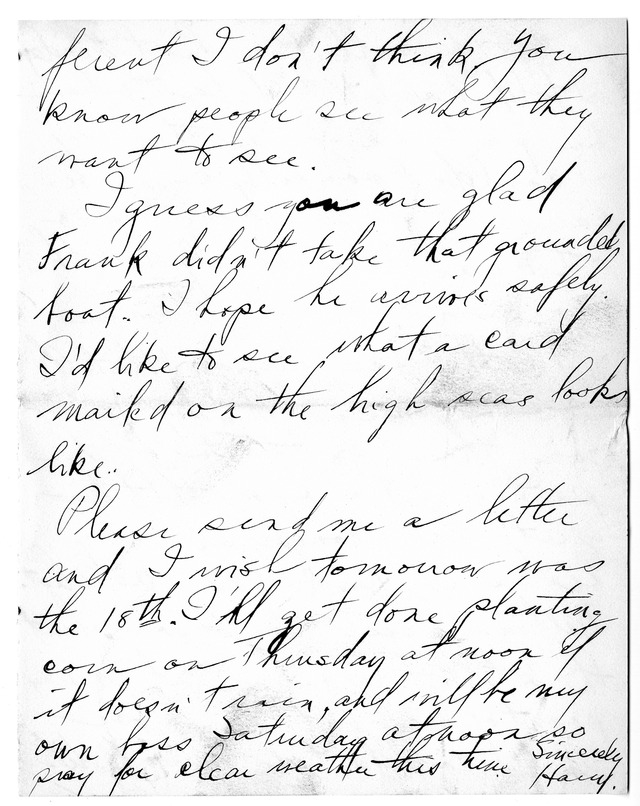 ferent I don't think. You
know people see what they
want to see.
I guess you are glad
Frank didn't take that grounded
boat.. I hope he arrives safely.
I'd like to see what a card
mailed on the high seas looks
like..
Please send me a letter
and I wish tomorrow was
the 18th. I'll get done planting
corn on Thursday at noon if
it doesn't rain, and will be my
own boss Saturday at noon so
pray for clear weather this time
Sincerely
Harry.